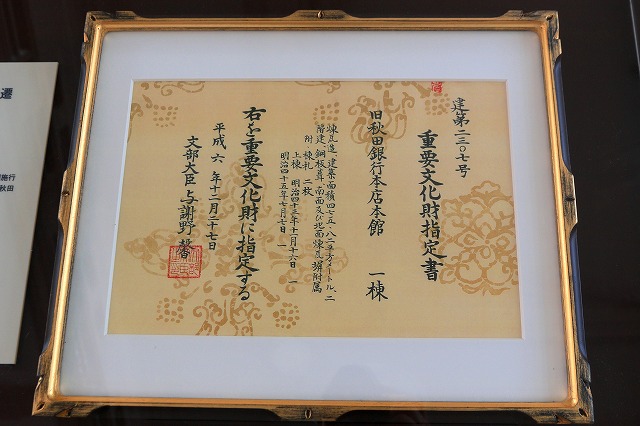 建第二三〇七号
重要文化財指定書
旧秋田銀行本店本館 一棟
煉瓦造、建築面積四七五・八二平方メートル、二
階建、銅板葺、南面及び北面煉瓦塀附属
附 棟札 二枚
上棟 明治四十三年十一月十六日 一
明治四十五年七月七日 一
右を重要文化財に指定する
平成六年十二月二十七日
文部大臣 与謝野馨
遷
施行
秋田